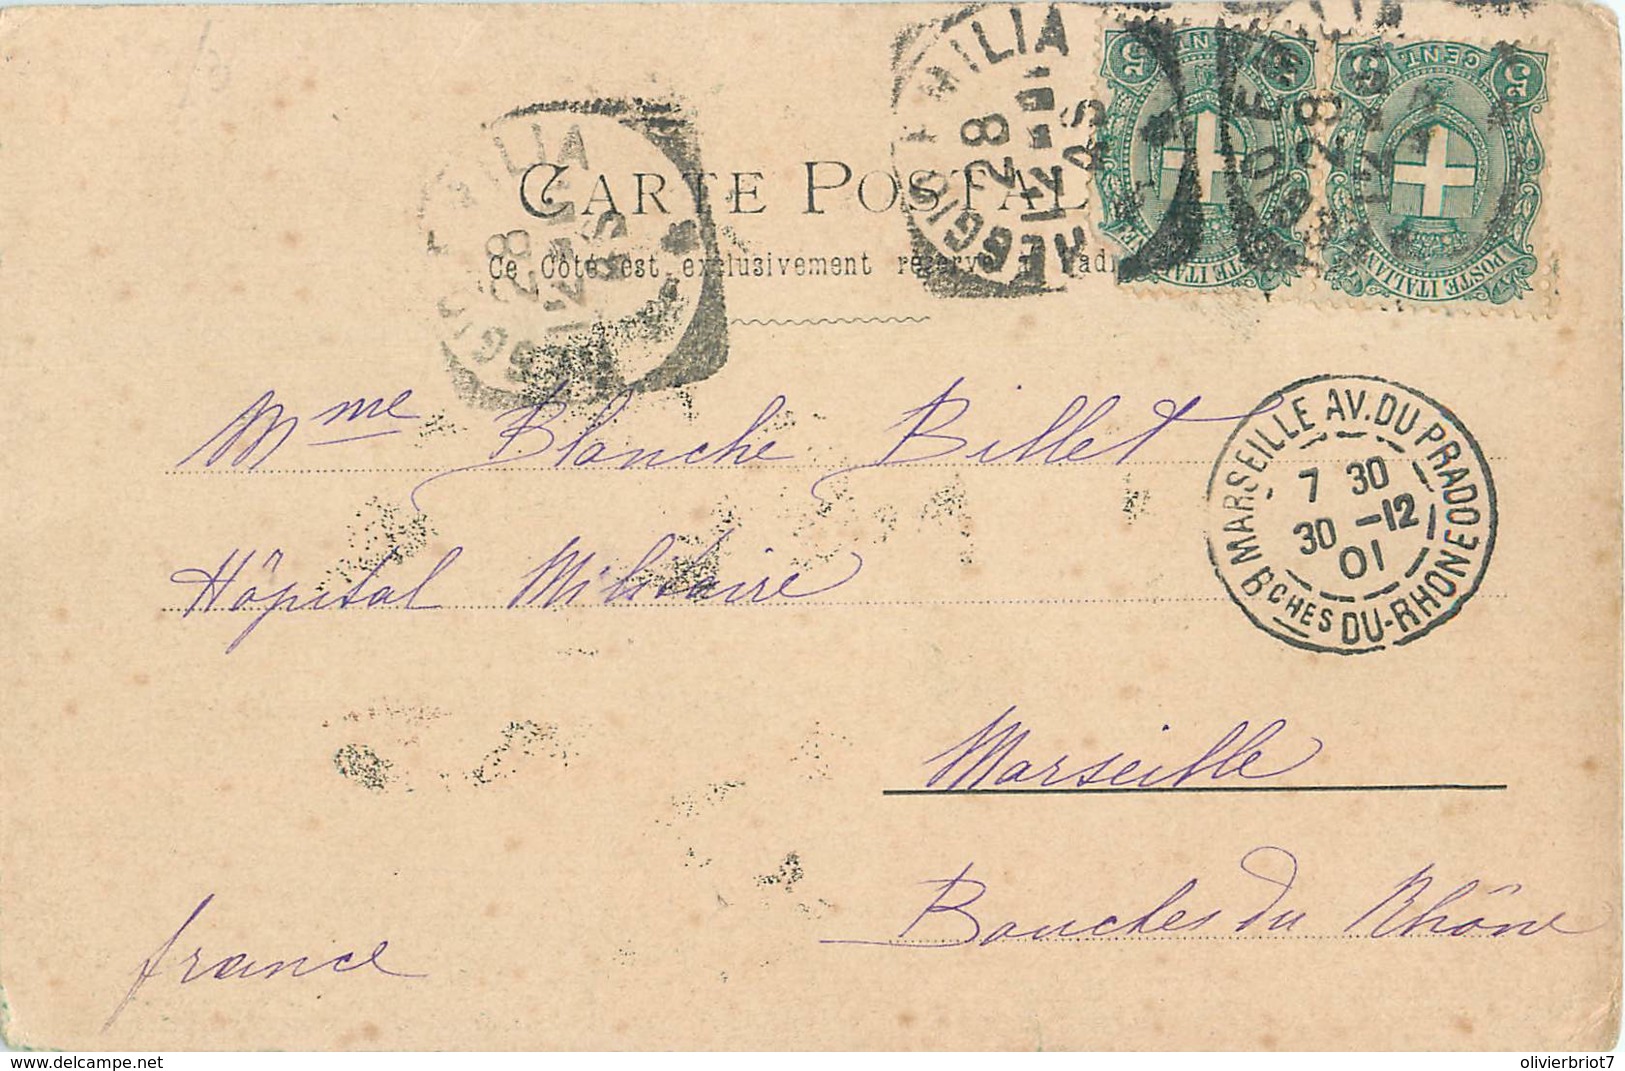 CARTE POSTAL
Ce Coté est exclusivement réservé
REGGIO EMILIA
28
12
5 CENT. 5
POSTE ITALIANE
Mme Blanche Billet
Hôpital Militaire
MARSEILLE AV. DU PRADO
7 30
30 -12
01
BCHES DU-RHONE
Marseille
Bouches du Rhône
france
delcampe.net
olivierbriot7